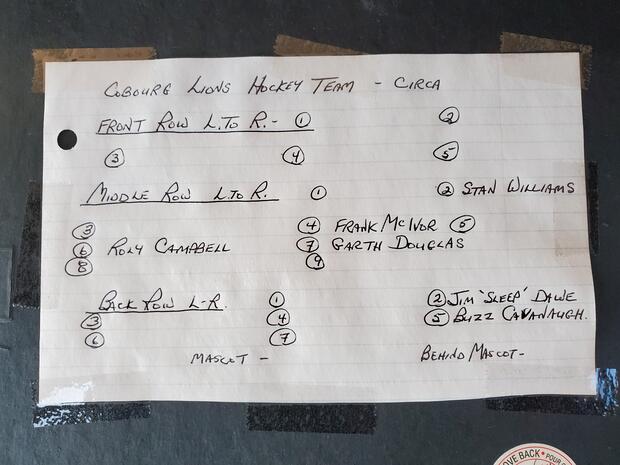 COBOURG LIONS HOCKEY TEAM - CIRCA
FRONT ROW L. TO R. - ① ②
③ ④ ⑤
MIDDLE ROW L. TO R. ① ② STAN WILLIAMS
③ ④ FRANK MCIVOR ⑤
⑥ RORY CAMPBELL ⑦ GARTH DOUGLAS
⑧ ⑨
BACK ROW L-R. ① ② JIM 'SLEEP' DAWE
③ ④ ⑤ BUZZ CAVANAUGH.
⑥ ⑦
MASCOT - BEHIND MASCOT -
OVE BACK • POUR